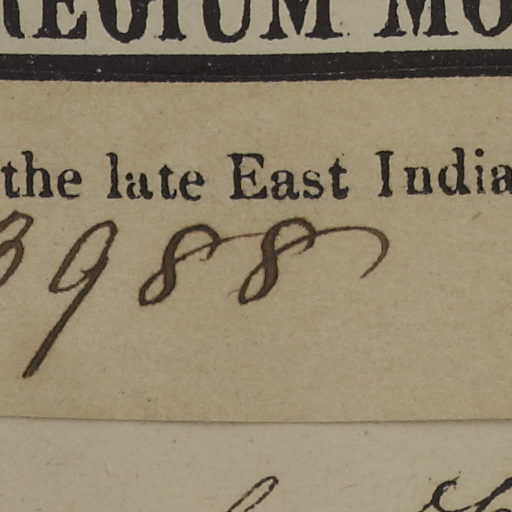 REGIUM MO
the late East India
3988